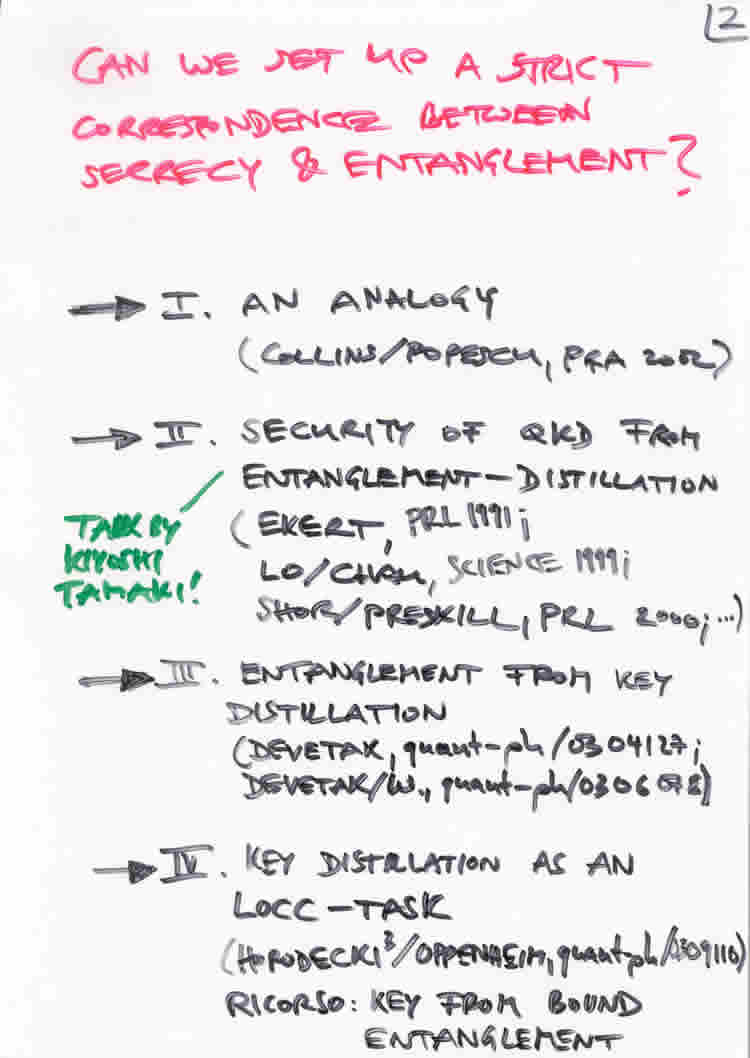 2
CAN WE SET UP A STRICT
CORRESPONDENCE BETWEEN
SECRECY & ENTANGLEMENT?
I. AN ANALOGY
(COLLINS/POPESCU, PRA 2002)
II. SECURITY OF QKD FROM
ENTANGLEMENT-DISTILLATION
(EKERT, PRL 1991;
LO/CHAU, SCIENCE 1999;
SHOR/PRESKILL, PRL 2000; ...)
TALK BY
KIYOSHI
TAMAKI!
III. ENTANGLEMENT FROM KEY
DISTILLATION
(DEVETAK, quant-ph/0304127;
DEVETAK/W., quant-ph/0306078)
IV. KEY DISTILLATION AS AN
LOCC-TASK
(HORODECKI³/OPPENHEIM, quant-ph/0309110)
RICORSO: KEY FROM BOUND
ENTANGLEMENT